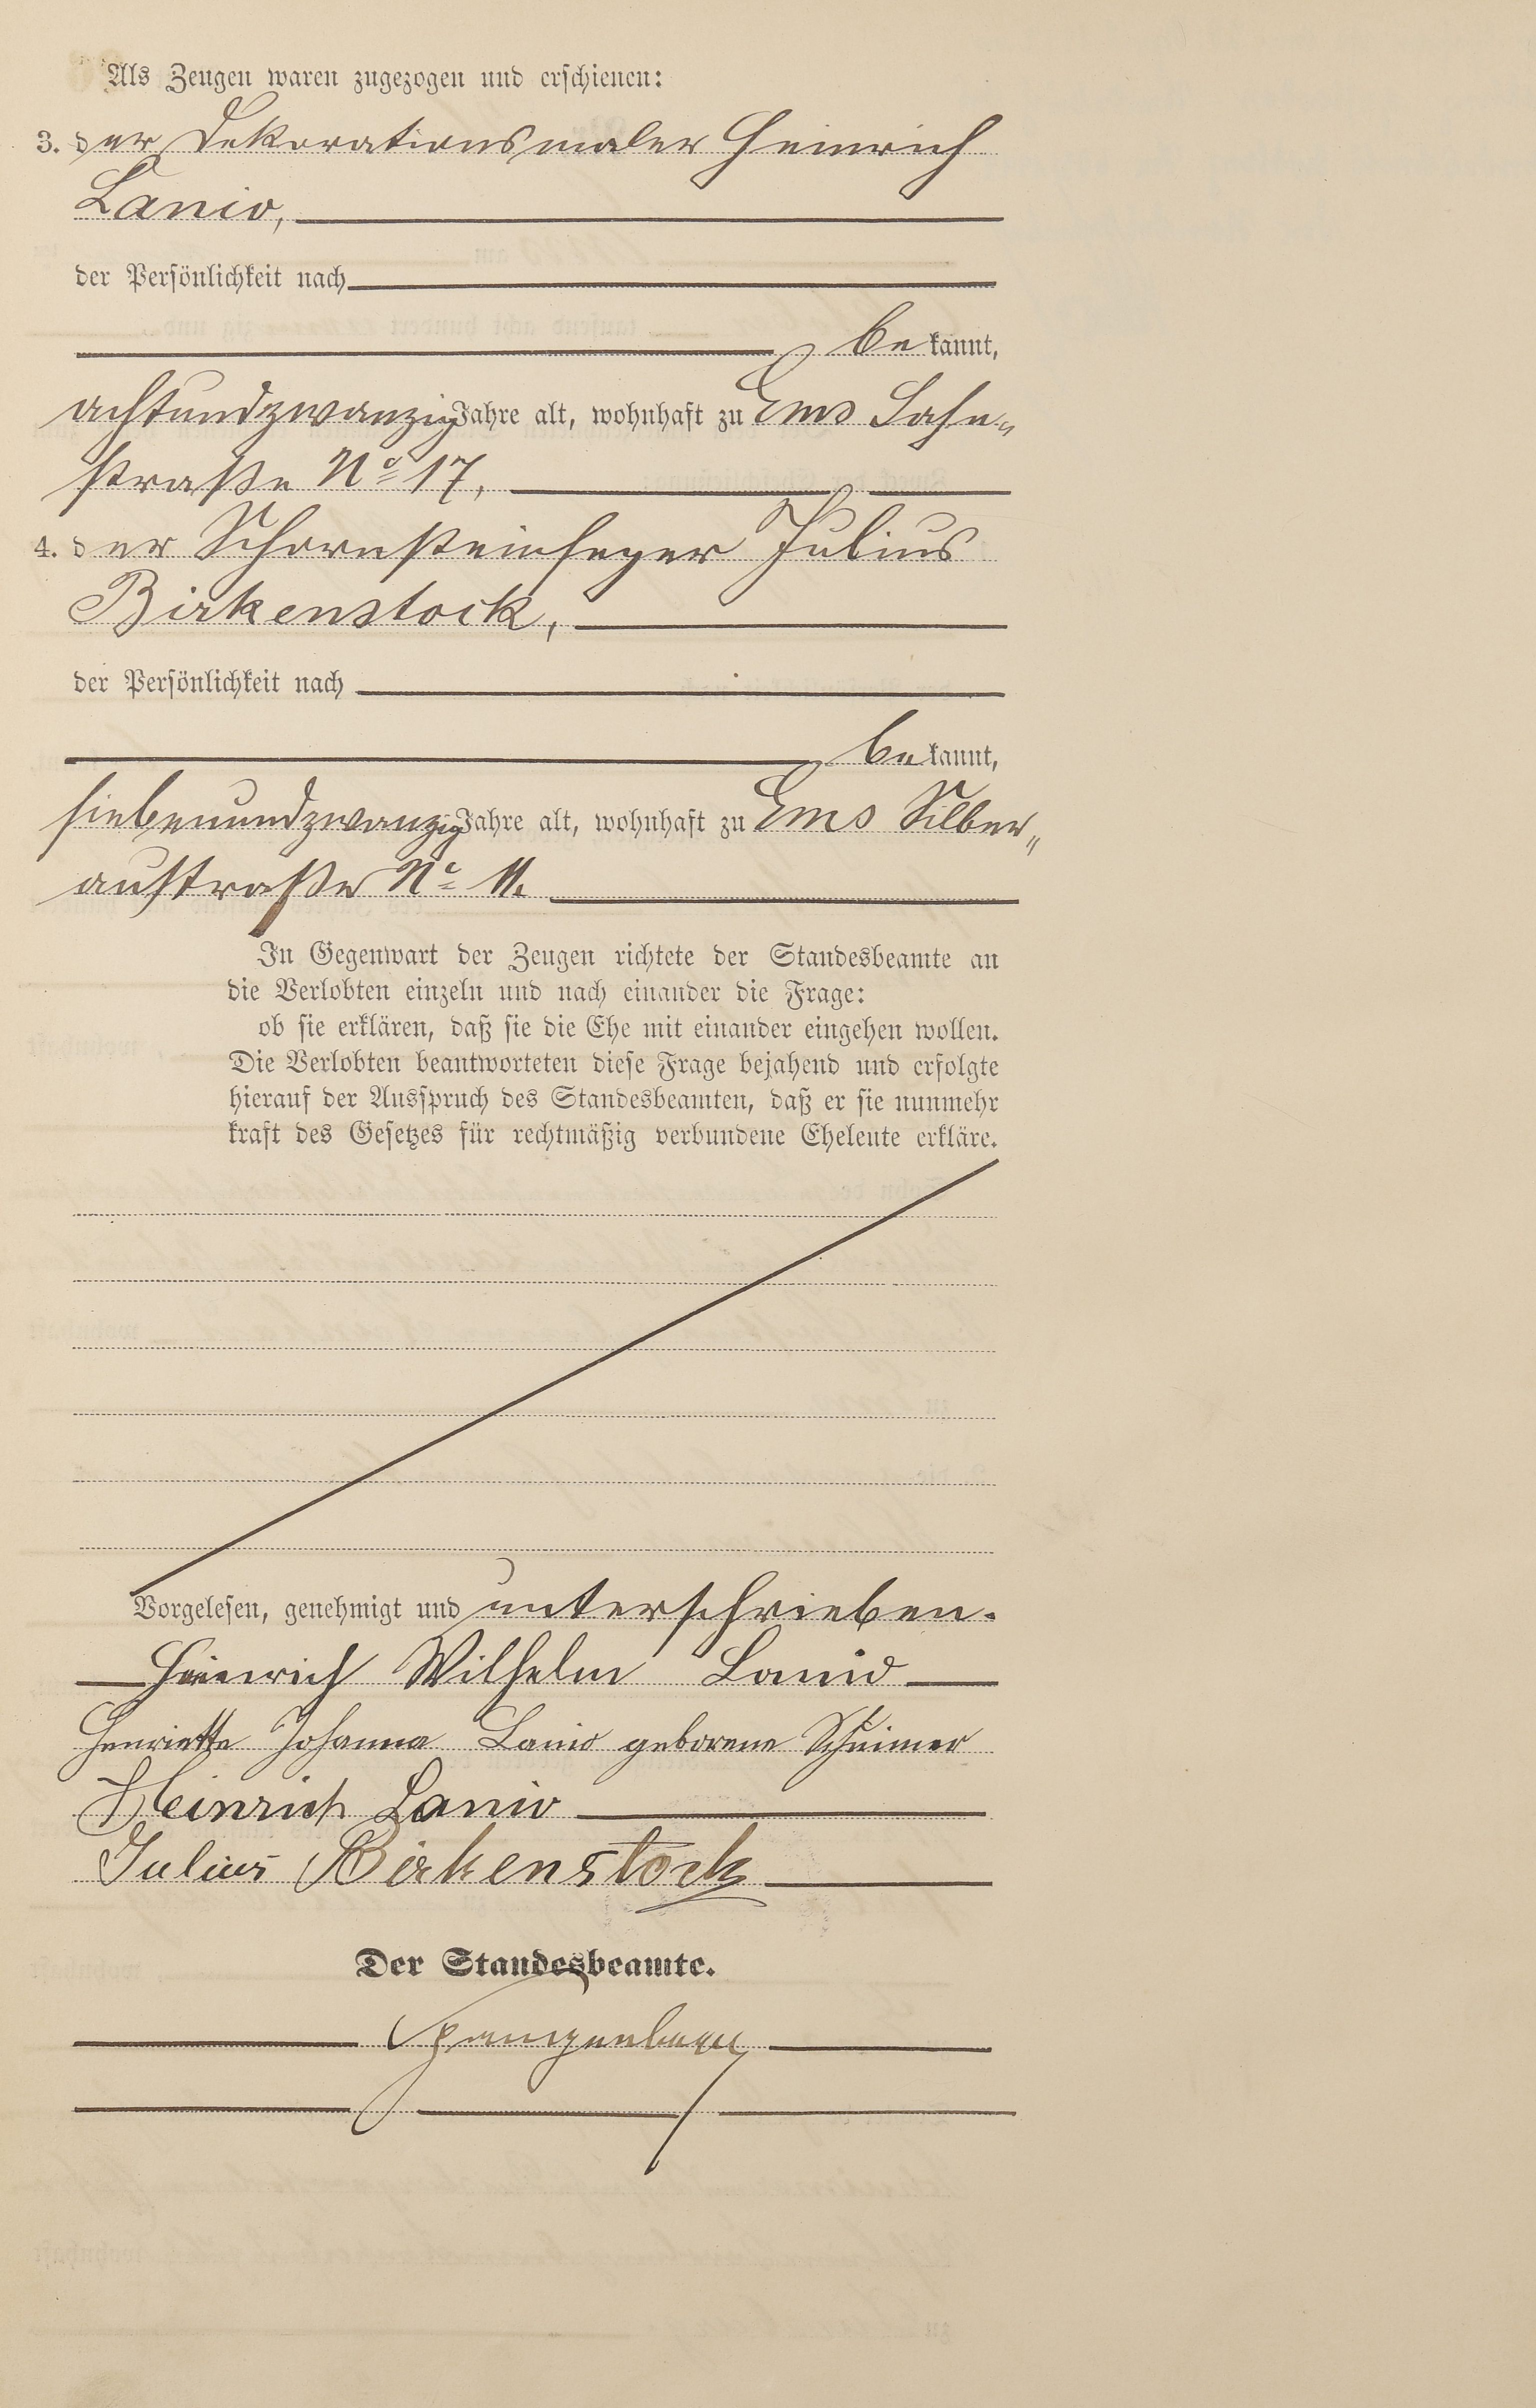 Als Zeugen waren zugezogen und erschienen:
3. der Dekorationsmaler Heinrich
Lanio,
der Persönlichkeit nach
bekannt,
achtundzwanzig Jahre alt, wohnhaft zu Ems Lahn-
straße No 17,
4. der Schornsteinfeger Julius
Birkenstock,
der Persönlichkeit nach
bekannt,
siebenundzwanzig Jahre alt, wohnhaft zu Ems Silber-
austraße No 11.
In Gegenwart der Zeugen richtete der Standesbeamte an
die Verlobten einzeln und nach einander die Frage:
ob sie erklären, daß sie die Ehe mit einander eingehen wollen.
Die Verlobten beantworteten diese Frage bejahend und erfolgte
hierauf der Ausspruch des Standesbeamten, daß er sie nunmehr
kraft des Gesetzes für rechtmäßig verbundene Eheleute erkläre.
Vorgelesen, genehmigt und unterschrieben.
Heinrich Wilhelm Lanio
Henriette Johanna Lanio geborene
Heinrich Lanio
Julius Birkenstock
Der Standesbeamte.
Spangenberg